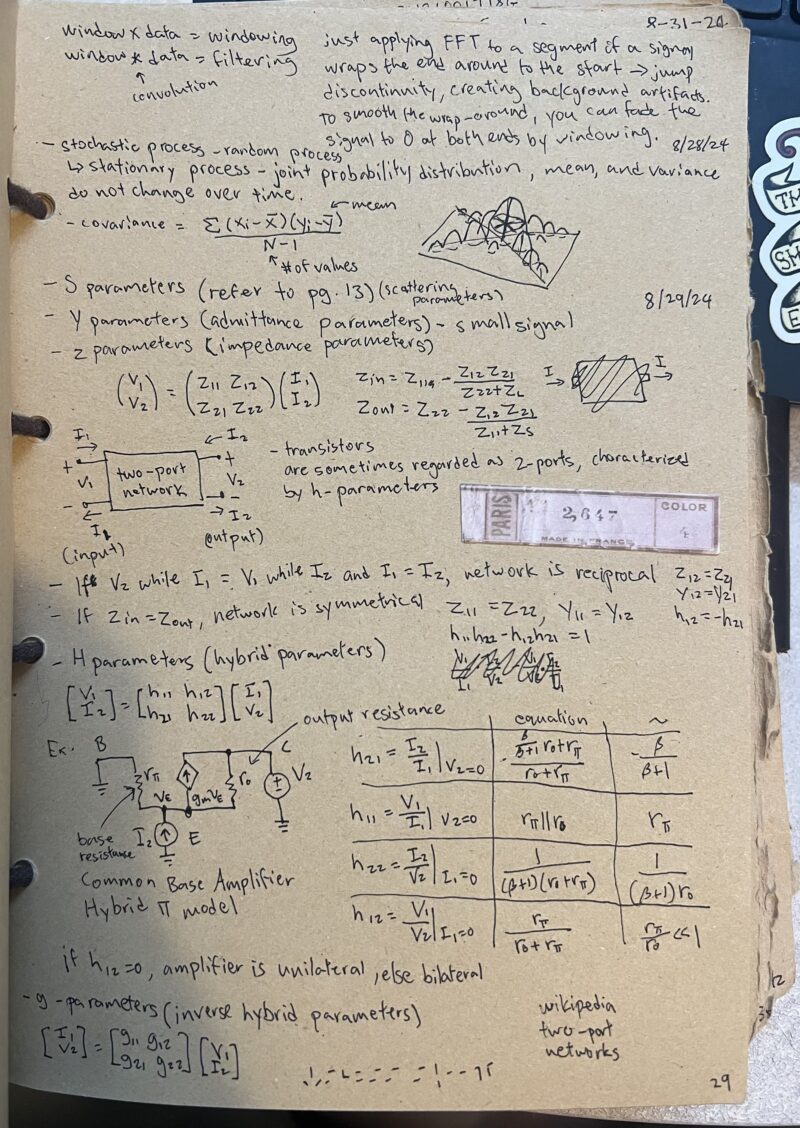 8-31-24
window x data = windowing
window * data = filtering
↑
convolution
just applying FFT to a segment of a signal
wraps the end around to the start → jump
discontinuity, creating background artifacts.
To smooth the wrap-around, you can fade the
signal to 0 at both ends by windowing.
8/28/24
- stochastic process - random process
↳ stationary process - joint probability distribution, mean, and variance
do not change over time.
- covariance = Σ(xi-x̄)(yi-ȳ) / N-1
← mean
↑ # of values
- S parameters (refer to pg. 13) (scattering parameters)
8/29/24
- Y parameters (admittance parameters) - small signal
- Z parameters (impedance parameters)
(V1 V2) = (Z11 Z12 Z21 Z22) (I1 I2)
Zin = Z11 - Z12 Z21 / Z22+ZL
Zout = Z22 - Z12 Z21 / Z11+ZS
I → I →
I1 → ← I2
+ V1 - two-port network + V2 -
← I1 → I2
(input) (output)
- transistors
are sometimes regarded as 2-ports, characterized
by h-parameters
PARIS
2,647
COLOR
4
MADE IN FRANCE
- If V2 while I1 = V1 while I2 and I1 = I2, network is reciprocal
Z12 = Z21
Y12 = Y21
h12 = -h21
- If Zin = Zout, network is symmetrical
Z11 = Z22, Y11 = Y12
h11h22 - h12h21 = 1
- H parameters (hybrid parameters)
[V1 I2] = [h11 h12 h21 h22] [I1 V2]
output resistance
Ex. B C
rπ VE gmVE ro V2
base resistance
I2 E
Common Base Amplifier
Hybrid π model
equation ~
h21 = I2/I1 | V2=0 - β/β+1 ro+rπ / ro+rπ - β/β+1
h11 = V1/I1 | V2=0 rπ||ro rπ
h22 = I2/V2 | I1=0 1/(β+1)(ro+rπ) 1/(β+1)ro
h12 = V1/V2 | I1=0 rπ/ro+rπ rπ/ro <<1
if h12=0, amplifier is unilateral, else bilateral
- g-parameters (inverse hybrid parameters)
[I1 V2] = [g11 g12 g21 g22] [V1 I2]
wikipedia
two-port
networks
29